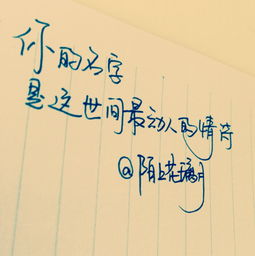 你的名字
是这世间最动人的情符
@陌上花璃月